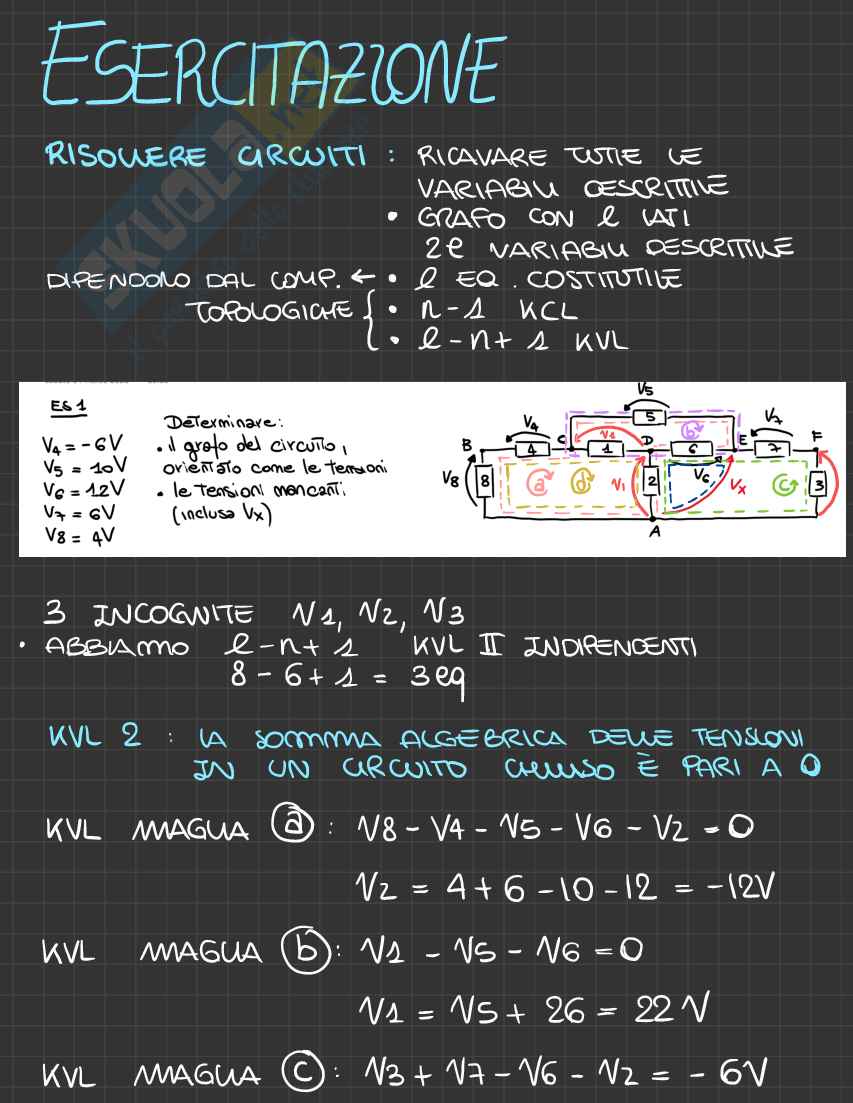 ESERCITAZIONE
RISOLVERE CIRCUITI : RICAVARE TUTTE LE
VARIABILI DESCRITTIVE
• GRAFO CON l LATI
2l VARIABILI DESCRITTIVE
DIPENDONO DAL COMP. ← • l EQ. COSTITUTIVE
TOPOLOGICHE { • n-1 KCL
• l-n+1 KVL
ES 1
Determinare:
• il grafo del circuito,
orientato come le tensioni
• le tensioni mancanti
(inclusa Vx)
V4 = -6V
V5 = 10V
V6 = 12V
V7 = 6V
V8 = 4V
V5
5
V4
V1
b
V7
B
4
C
1
D
6
E
7
F
V8
8
a
d
V1
2
V6
Vx
c
3
A
3 INCOGNITE V1, V2, V3
• ABBIAMO l-n+1 KVL II INDIPENDENTI
8-6+1 = 3eq
KVL 2 : LA SOMMA ALGEBRICA DELLE TENSIONI
IN UN CIRCUITO CHIUSO È PARI A 0
KVL MAGLIA a : V8 - V4 - V5 - V6 - V2 = 0
V2 = 4 + 6 - 10 - 12 = -12V
KVL MAGLIA b : V1 - V5 - V6 = 0
V1 = V5 + 26 = 22 V
KVL MAGLIA c : V3 + V7 - V6 - V2 = - 6V